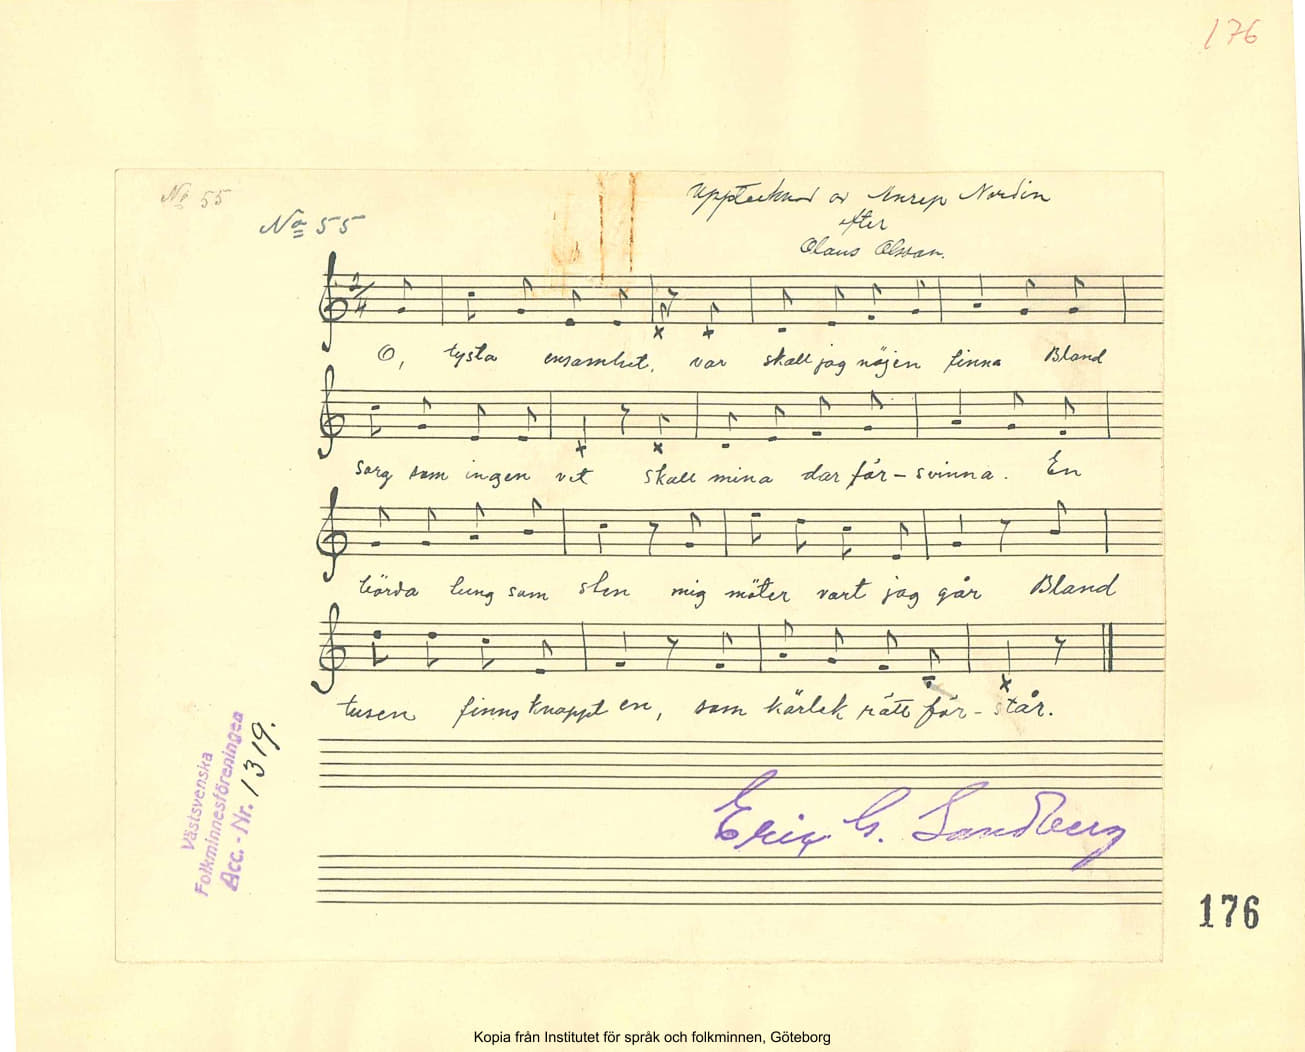 176
No 55
No 55
Upptecknad av Anrep Nordin
efter
Olaus Olsson.
2/4
O, tysta ensamhet, var skall jag nöjen finna Bland
sorg som ingen vet skall mina dar för- svinna. En
börda tung som sten mig möter vart jag går Bland
tusen finns knappt en, som kärlek rätt för- står.
Västsvenska
Folkminnesföreningen
Acc. - Nr. 1319.
Erix G. Sandberg
176
Kopia från Institutet för språk och folkminnen, Göteborg